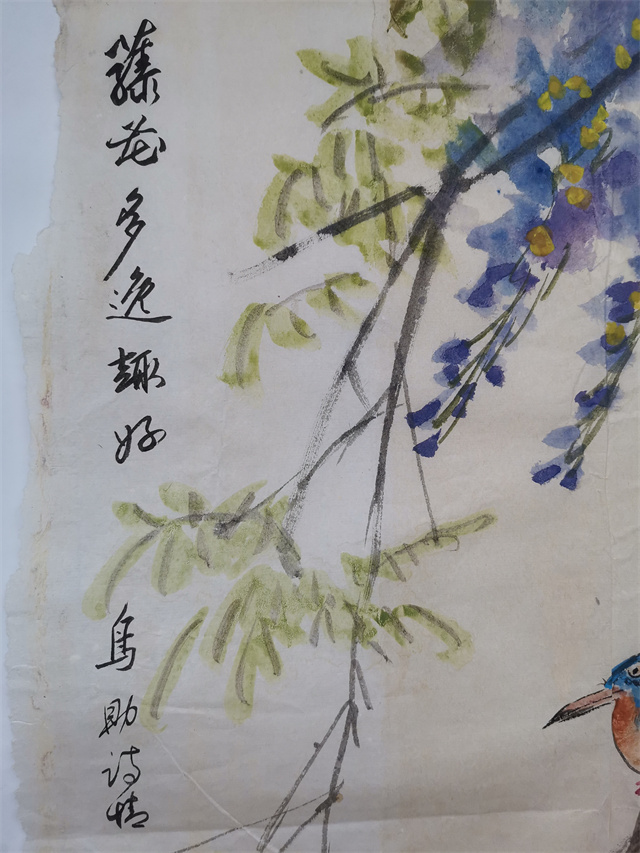 藤花多逸趣好
鸟助诗情